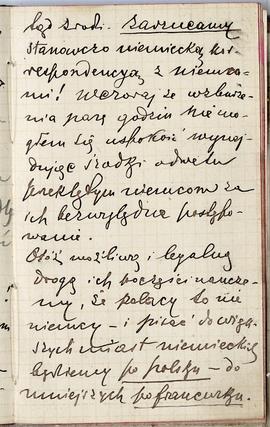 bądź źródł. zarzucamy
stanowczo niemiecką ko-
respondencyą z niemca-
mi! Wczoraj ze wzburze-
nia parę godzin nie mo-
głem się uspokoić wynaj-
dując środki odwetu
przeklętym niemcom za
ich bezwzględne postępo-
wanie.
Otóż możliwą i legalną
drogą ich poczęści nauczy-
my, że polacy to nie
niemcy – i pisać do więk-
szych miast niemieckich
będziemy po polsku – do
mniejszych po francusku.